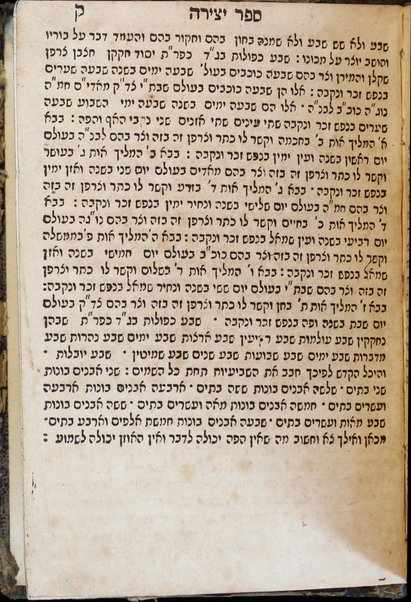 ספר יצירה ק
שבע ולא שש שבע ולא שמנה בחון בהם וחקור בהם והעמד דבר על בוריו
והושב יוצר על מכונו : שבע כפולות בג״ד כפר״ת יסוד חקקן חצבן צרפן
שקלן והמירן וצר בהם שבעה כוכבים בעול׳ שבעה ימים בשנה שבעה שערים
בנפש זכר ונקבה : אלו הן שבעה כוכבים בעולם שבת״י צד״ק מאדי״ם חמ״ה
נוג״ה כוכ״ב לבנ״ה • אלו הם שבעה ימים בשנה שבעה ימי השבוע שבעה
שערים בנפש זכר ונקבה שתי עינים שתי אזנים שני נקבי האף והפה : בבא
א׳ המליך אות ב׳ בחכמה וקשר לו כתר וצרפן זה בזה וצר בהם לבנ״ה בעולם
יום ראשון בשנה ועין ימין בנפש זכר ונקבה : בבא ב׳ המליך אות ג׳ בעושר
וקשר לו כתר וצרפן זה בזה וצר בהם מאדים בעולם יום שני בשנה ואזן ימין
בנפש זכר ונקבה • בבא ג׳ המליך אות ד׳ בזרע וקשר לו כתר וצרפן זה בזה
וצר בהם חמ״ה בעולם יום שלישי בשנה ונחיר ימין בנפש זכר ונקבה : בבא
ד׳ המליך אות כ׳ בחיים וקשר לו כתר וצרפן זה בזה וצר בהם נוגה בעולם
יום רביעי בשנה ועין שמאל בנפש זכר ונקבה : בבא ה׳ המליך אות פ׳ בממשלה
וקשר לו כתר וצרפן זה בזה וצר בהם כוכ״ב בעולם יום חמישי בשנה ואזן
שמאל בנפש זכר ונקבה : בבא ו׳ המליך אות ר׳ בשלום וקשר לו כתר וצרפן
זה בזה וצר בהם שבת״י בעולם יום ששי בשנה ונחיר שמאל בנפש זכר ונקבה:
בבא ז׳ המליך אות ת׳ בחן וקשר לו כתר וצרפן זה בזה וצר בהם צד״ק בעולם
יום שבת בשנה ופה בנפש זכר ונקבה • שבע כפולות בג״ד כפר״ת שבהן
נחקקין שבע עולמות שבע רקיעין שבע ארצות שבע ימים שבע נהרות שבע
מדברות שבע ימים שבע שבועות שבע שנים שבע שמיטין • שבע יובלות •
והיכל הקדש לפיכך חבב את השביעיות תחת כל השמים : שני אבנים בונות
שני בתים • שלשה אבנים בונות ששה בתים • ארבעה אבנים בונות ארבעה
ועשרים בתים • חמשה אבנים בונות מאה ועשרים בתים • ששה אבנים בונות
שבע מאות ועשרים בתים • שבעה אבנים בונות חמשת אלפים וארבע בתים•
מכאן ואילך צא וחשוב מה שאין הפה יכולה לדבר ואין האוזן יכולה לשמוע :